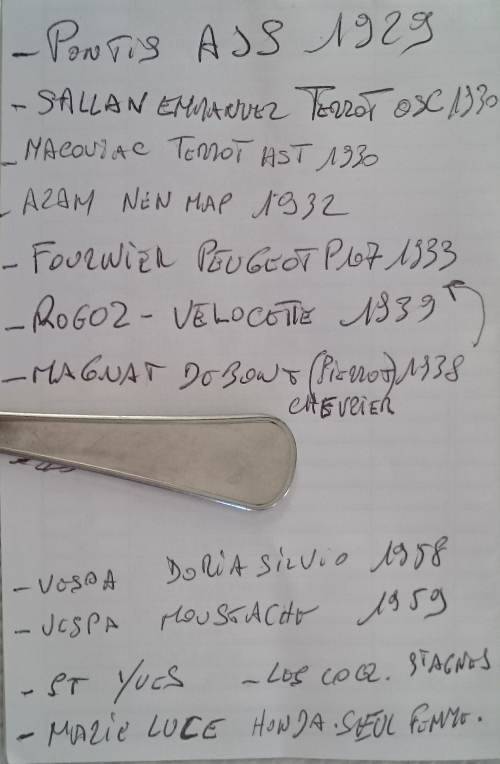 - PONTIS AJS 1929
- SALLAN EMMANUEL TERROT OSC 1930
- MACOUIAC TERROT HST 1930
- AZAM NEN MAP 1932
- FOURNIER PEUGEOT P107 1933
- ROGOZ - VELOCETTE 1939
- MAGNAT DEBONT (PIERROT) 1938
CHEVRIER
- VESPA DORIA SILVIO 1958
- VESPA MOUSTACHE 1959
- ST YVES - LES COQ. STAGNES
- MARIE LUCE HONDA. SEUL FEMME.